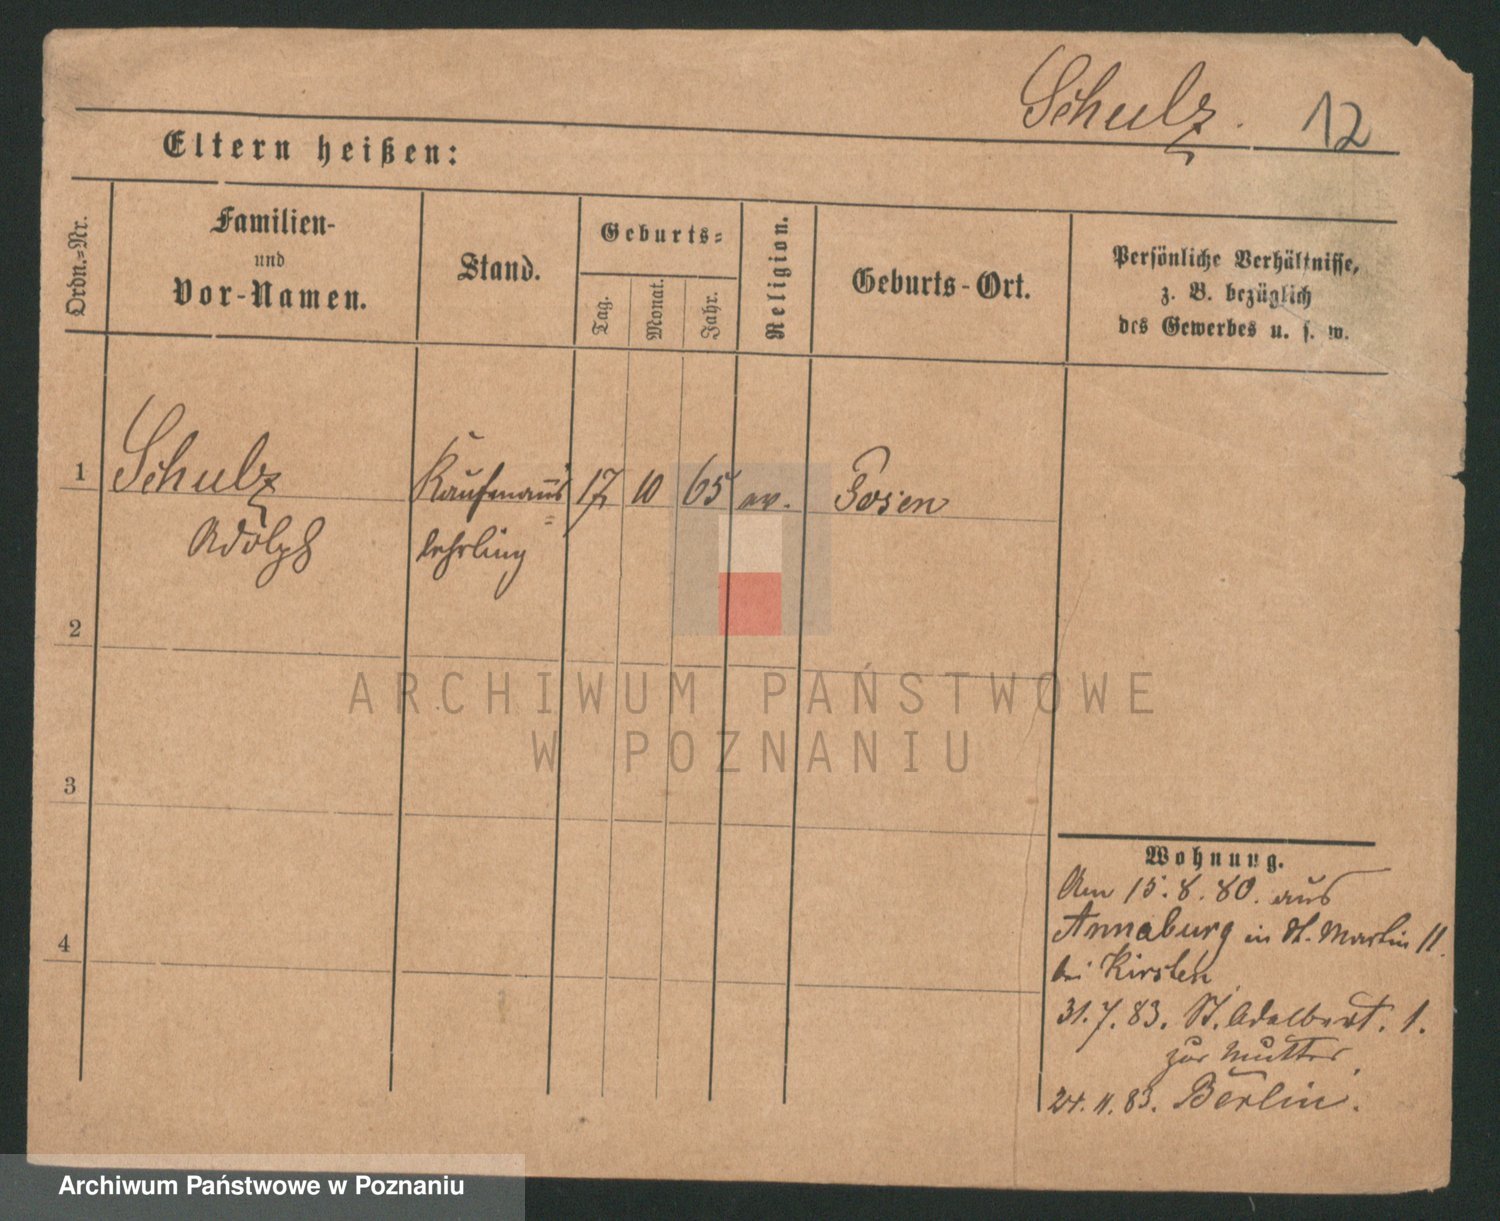 Schulz. 12
Eltern heißen:
Ordn.=Nr.
Familien-
und
Vor-Namen.
Stand.
Geburts=
Tag.
Monat.
Jahr.
Religion.
Geburts-Ort.
Persönliche Verhältnisse,
z. B. bezüglich
des Gewerbes u. s. w.
1 Schulz Kaufmanns 17 10 65 ev. Posen
Adolph lehrling
2
3
4
Wohnung.
Am 15.8.80. aus
Annaburg in St. Martin 11.
bei Kirsten
31.7.83. St. Adalbert. 1.
zur Mutter.
24.11.83. Berlin.
ARCHIWUM PAŃSTWOWE
W POZNANIU
Archiwum Państwowe w Poznaniu